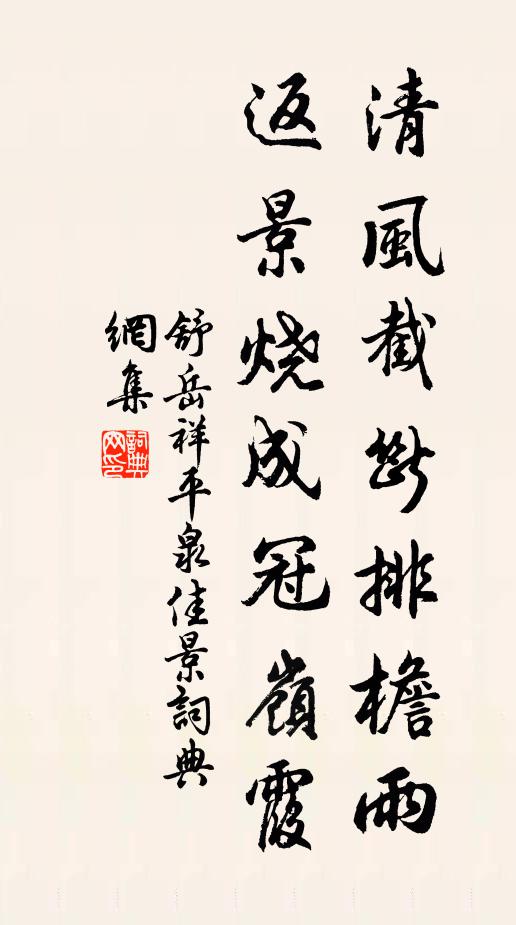 清風截斷排檐雨
返景燒成冠嶺霞
舒岳祥平泉佳景詞典
網集
詞典
網印